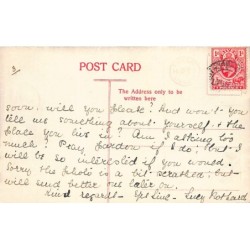 3
POST CARD
The Address only to be
written here
soon, will you please? And won't you
tell me something about yourself & the
place you live in? Am I asking too
much? Pray pardon if I do! But I
will be so interested if you would.
Sorry this photo is a bit scratched: but
will send better one later on.
Kind regards - Yrs Sinc. Lucy